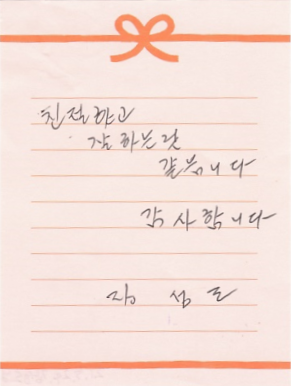 친절하고
잘 하는것
같습니다
감사합니다